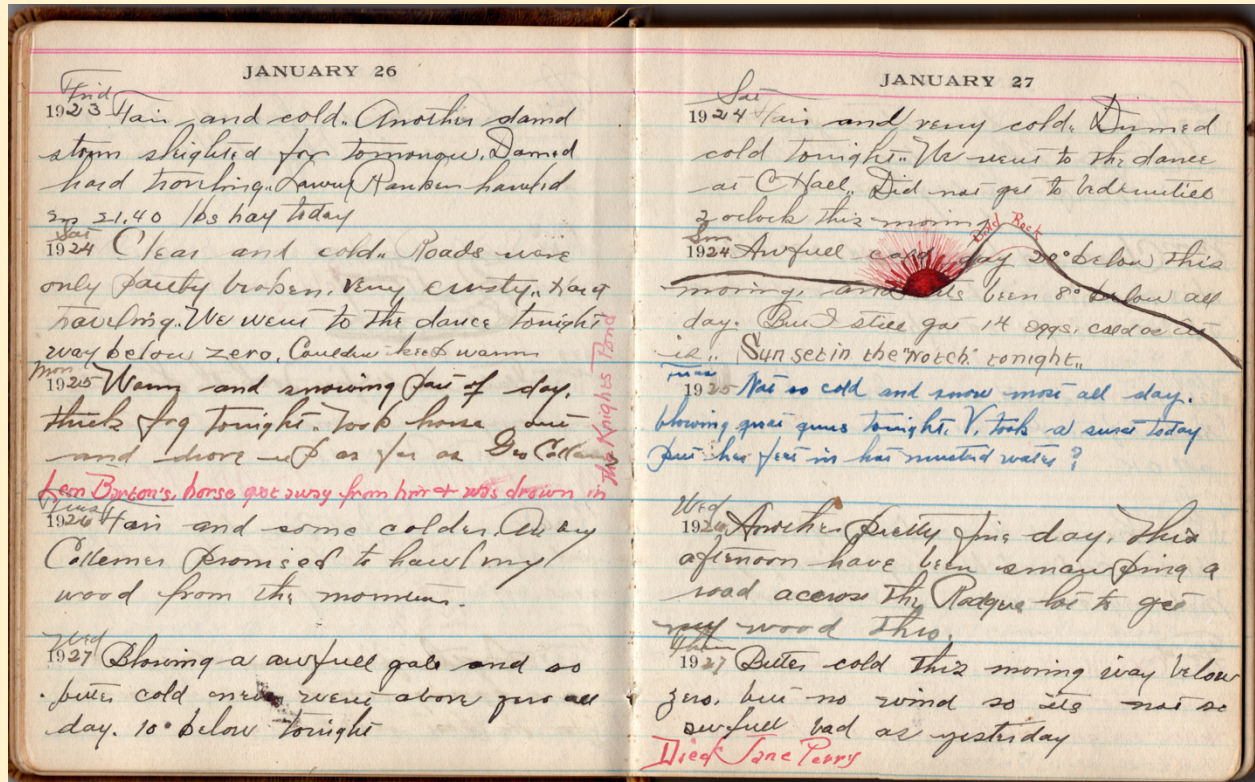 JANUARY 26
Frid
1923 Fair and cold. Another damd
storm slighted for tomorrow. Damed
hard traveling. Lowell Ranken hawled
in 21.40 lbs hay today
Sat
1924 Clear and cold. Roads were
only partly broken. very crusty. Hard
traveling. We went to the dance tonight
way below zero. Couldn keep warm
Mon
1925 Warm and snowing part of day.
thick fog tonight. Took horse
and drove up as far as Geo
Len Barton's, horse got away from him & was drown in
The Knights Pond
Tues
1926 Fair and some colder.
Collemer promised to hawl my
wood from the
Wed
1927 Blowing a awfull gale and so
bitter cold never went above zero all
day. 10° below tonight
JANUARY 27
Sat
1924 Fair and very cold. Dimed
cold tonight. We went to the dance
at C Hall. Did not get to bed until
2 oclock this morning
Bald Rock
Sun
1924 Awfull cold day 20° below this
morning, and its been 8° below all
day. But I still got 14 eggs. cold as it
is. Sun set in the "Notch" tonight.
1925 Not so cold and snow most all day.
blowing great guns tonight. V. took a sweat today
put her feet in hot mustard water?
Wed
1926 Another pretty fine day. This
afternoon have been swamping a
road accross the lot to get
my wood thro.
Thur
1927 Bitter cold this morning way below
zero. but no wind so its not so
awfull bad as yesterday
Died Jane Perry